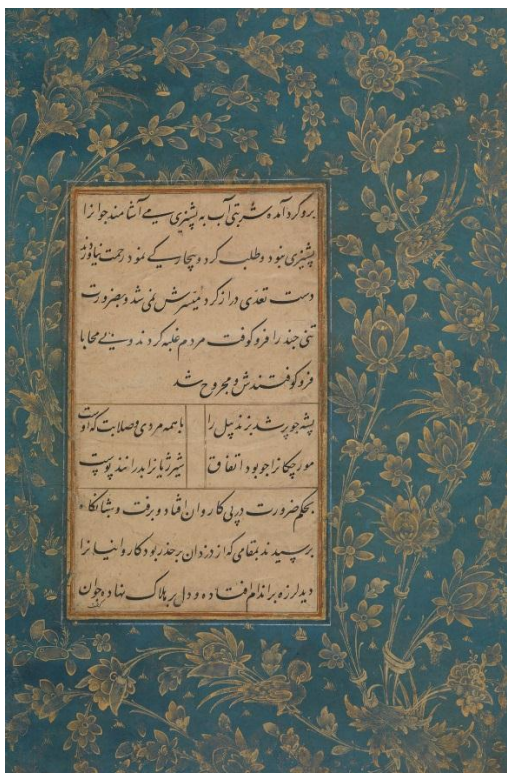 برو گرد آمده شربتی آب به پشیزی همی آشامند جوانرا
پشیزی نبود و طلب کرد و بیچارگی نمود رحمت نیاوردند
دست تعدی دراز کرد میسرش نمی شد و بضرورت
تنی چند را فرو کوفت مردم غلبه کردند و بی محابا
فرو کوفتندش و مجروح شد
پشه چو پر شد بزند پیل را
با همه مردی و صلابت که اوست
مورچگانرا چو بود اتفاق
شیر ژیانرا بدرانند پوست
بحکم ضرورت در پی کاروان افتاد و برفت و شبانگاه
برسیدند بمقامی که از دزدان بر حذر بود کاروانیانرا
دید لرزه بر اندام افتاده و دل بر هلاک نهاده جوان